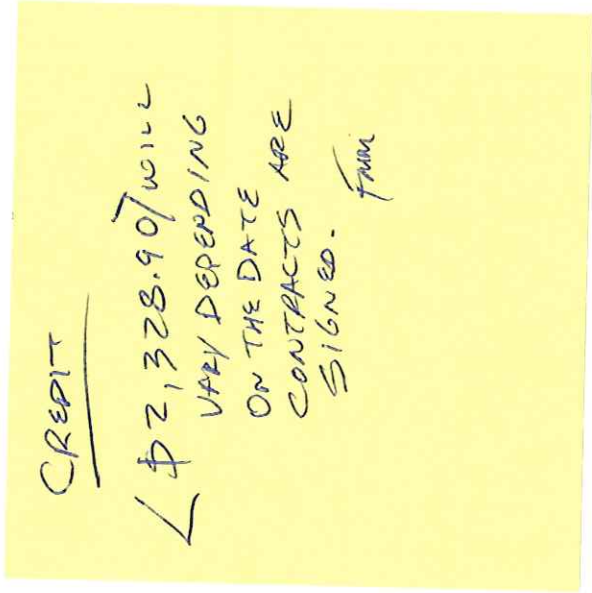 CREDIT
<$2,328.90> WILL
VARY DEPENDING
ON THE DATE
CONTRACTS ARE
SIGNED.